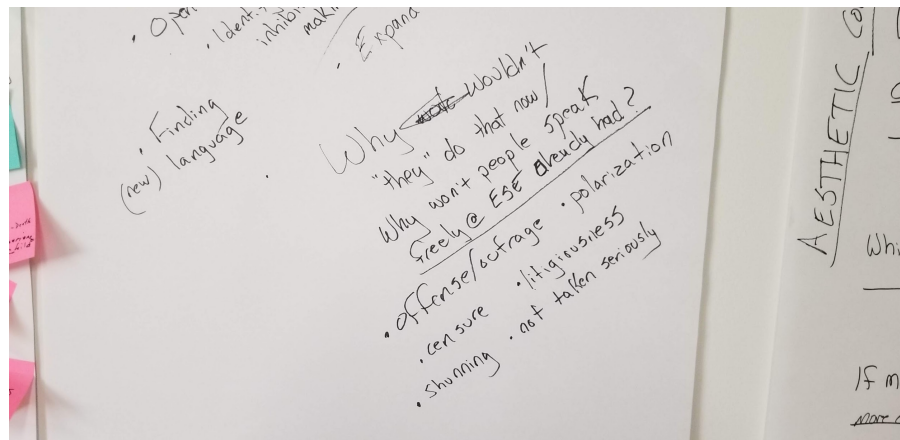 • Identi
inhibi
makin
• Expand
• Finding
(new) language
Why wouldn't
"they" do that now /
Why won't people speak
freely @ ESE already had?
• offense/outrage • polarization
• censure • litigiousness
• shunning • not taken seriously
AESTHETIC Co
Whi
If m
more